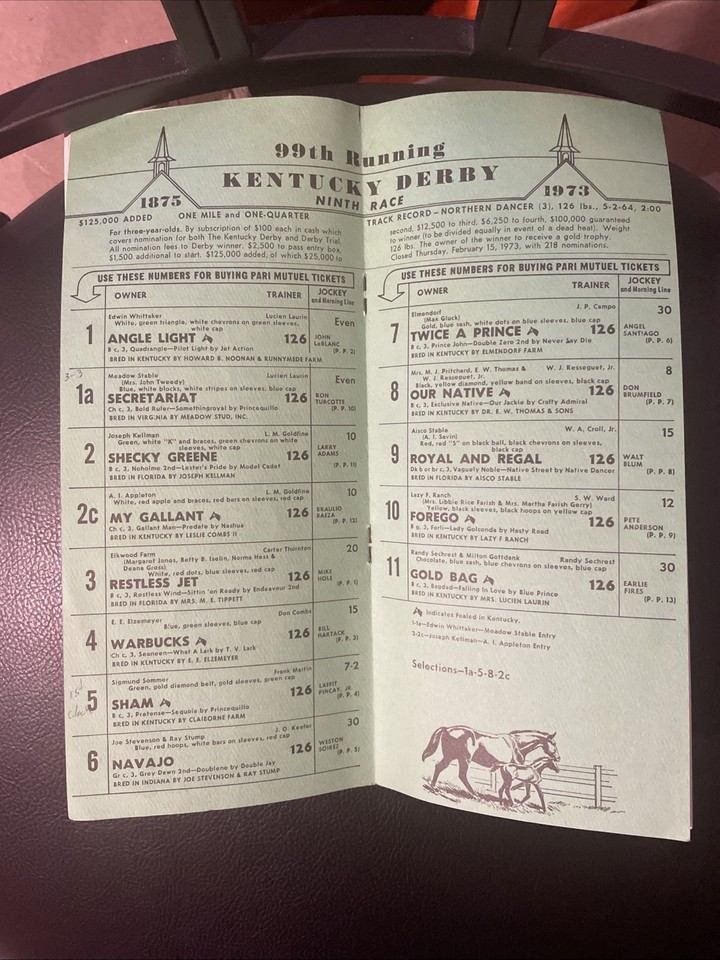 99th Running
KENTUCKY DERBY
1875
NINTH RACE
1973
$125,000 ADDED
ONE MILE and ONE-QUARTER
TRACK RECORD—NORTHERN DANCER (3), 126 lbs., 5-2-64, 2:00
For three-year-olds. By subscription of $100 each in cash which
covers nomination for both The Kentucky Derby and Derby Trial.
All nomination fees to Derby winner. $2,500 to pass entry box,
$1,500 additional to start. $125,000 added, of which $25,000 to
second, $12,500 to third, $6,250 to fourth, $100,000 guaranteed
to winner (to be divided equally in event of a dead heat). Weight
126 lbs. The owner of the winner to receive a gold trophy.
Closed Thursday, February 15, 1973, with 218 nominations.
USE THESE NUMBERS FOR BUYING PARI MUTUEL TICKETS
OWNER TRAINER JOCKEY
and Morning Line
Edwin Whittaker Lucien Laurin Even
White, green triangle, white chevrons on green sleeves,
white cap
1 ANGLE LIGHT 126 JOHN
LeBLANC
B c, 3, Quadrangle—Pilot Light by Jet Action (P. P. 2)
BRED IN KENTUCKY BY HOWARD B. NOONAN & RUNNYMEDE FARM
Meadow Stable Lucien Laurin Even
(Mrs. John Tweedy)
Blue, white blocks, white stripes on sleeves, blue cap
1a SECRETARIAT 126 RON
TURCOTTE
Ch c, 3, Bold Ruler—Somethingroyal by Princequillo (P. P. 10)
BRED IN VIRGINIA BY MEADOW STUD, INC.
Joseph Kellman L. M. Goldfine 10
Green, white "K" and braces, green chevrons on white
sleeves, white cap
2 SHECKY GREENE 126 LARRY
ADAMS
B c, 3, Noholme 2nd—Lester's Pride by Model Cadet (P. P. 11)
BRED IN FLORIDA BY JOSEPH KELLMAN
A. I. Appleton L. M. Goldfine 10
White, red apple and braces, red bars on sleeves, red cap
2c MY GALLANT 126 BRAULIO
BAEZA
Ch c, 3, Gallant Man—Predate by Nashua (P. P. 12)
BRED IN KENTUCKY BY LESLIE COMBS II
Elkwood Farm Carter Thornton 20
(Margaret Jones, Betty B. Iselin, Norma Hess &
Deane Gross)
White, red dots, blue sleeves, red cap
3 RESTLESS JET 126 MIKE
HOLE
B c, 3, Restless Wind—Sittin' on Ready by Endeavour 2nd (P. P. 1)
BRED IN FLORIDA BY MRS. M. E. TIPPETT
E. E. Elzemeyer Don Combs 15
Blue, green sleeves, blue cap
4 WARBUCKS 126 BILL
HARTACK
Ch c, 3, Seaneen—What A Lark by T. V. Lark (P. P. 3)
BRED IN KENTUCKY BY E. E. ELZEMEYER
Sigmund Sommer Frank Martin 7-2
Green, gold diamond belt, gold sleeves, green cap
5 SHAM 126 LAFFIT
PINCAY, JR.
B c, 3, Pretense—Sequoia by Princequillo (P. P. 4)
BRED IN KENTUCKY BY CLAIBORNE FARM
Joe Stevenson & Ray Stump J. O. Keefer 30
Blue, red hoops, white bars on sleeves, red cap
6 NAVAJO 126 WESTON
SOIREZ
Gr c, 3, Grey Dawn 2nd—Doublene by Double Jay (P. P. 5)
BRED IN INDIANA BY JOE STEVENSON & RAY STUMP
USE THESE NUMBERS FOR BUYING PARI MUTUEL TICKETS
OWNER TRAINER JOCKEY
and Morning Line
Elmendorf J. P. Campo 30
(Max Gluck)
Gold, blue sash, white dots on blue sleeves, blue cap
7 TWICE A PRINCE 126 ANGEL
SANTIAGO
B c, 3, Prince John—Double Zero 2nd by Never Say Die (P. P. 6)
BRED IN KENTUCKY BY ELMENDORF FARM
Mrs. M. J. Pritchard, E. W. Thomas & W. J. Resseguet, Jr. 8
W. J. Resseguet, Jr.
Black, yellow diamond, yellow band on sleeves, black cap
8 OUR NATIVE 126 DON
BRUMFIELD
B c, 3, Exclusive Native—Our Jackie by Crafty Admiral (P. P. 7)
BRED IN KENTUCKY BY DR. E. W. THOMAS & SONS
Aisco Stable W. A. Croll, Jr. 15
(A. I. Savin)
Red, red "S" on black ball, black chevrons on sleeves,
black cap
9 ROYAL AND REGAL 126 WALT
BLUM
Dk b or br c, 3, Vaguely Noble—Native Street by Native Dancer (P. P. 8)
BRED IN FLORIDA BY AISCO STABLE
Lazy F. Ranch S. W. Ward 12
(Mrs. Libbie Rice Farish & Mrs. Martha Farish Gerry)
Yellow, black sleeves, black hoops on yellow cap
10 FOREGO 126 PETE
ANDERSON
B g, 3, Forli—Lady Golconda by Hasty Road (P. P. 9)
BRED IN KENTUCKY BY LAZY F RANCH
Randy Sechrest & Milton Gottdank Randy Sechrest 30
Chocolate, blue sash, blue chevrons on sleeves, blue cap
11 GOLD BAG 126 EARLIE
FIRES
B c, 3, Bagdad—Falling In Love by Blue Prince (P. P. 13)
BRED IN KENTUCKY BY MRS. LUCIEN LAURIN
Indicates Foaled in Kentucky.
1-1a—Edwin Whittaker—Meadow Stable Entry
2-2c—Joseph Kellman—A. I. Appleton Entry
Selections—1a-5-8-2c